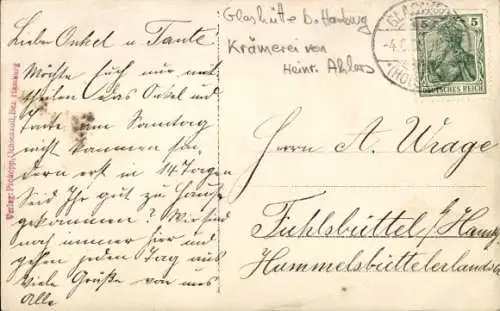 Glashütte b. Hamburg
Krämerei von
Heinr. Ahlers
Liebe Onkel u Tante
Möchte Euch nur mit-
theilen das Onkel und
Tante am Samstag
nicht kommen son-
dern erst in 14 Tagen
Seid Ihr gut zu Hause
gekommen? Wir sind
noch immer hier und
gehen jeden Tag aus
Viele Grüße von uns
Alle
Herrn A. Wrage
Fuhlsbüttel b/Hamb
Hummelsbüttelerlands
5 5
DEUTSCHES REICH
GLASH
Verlag: